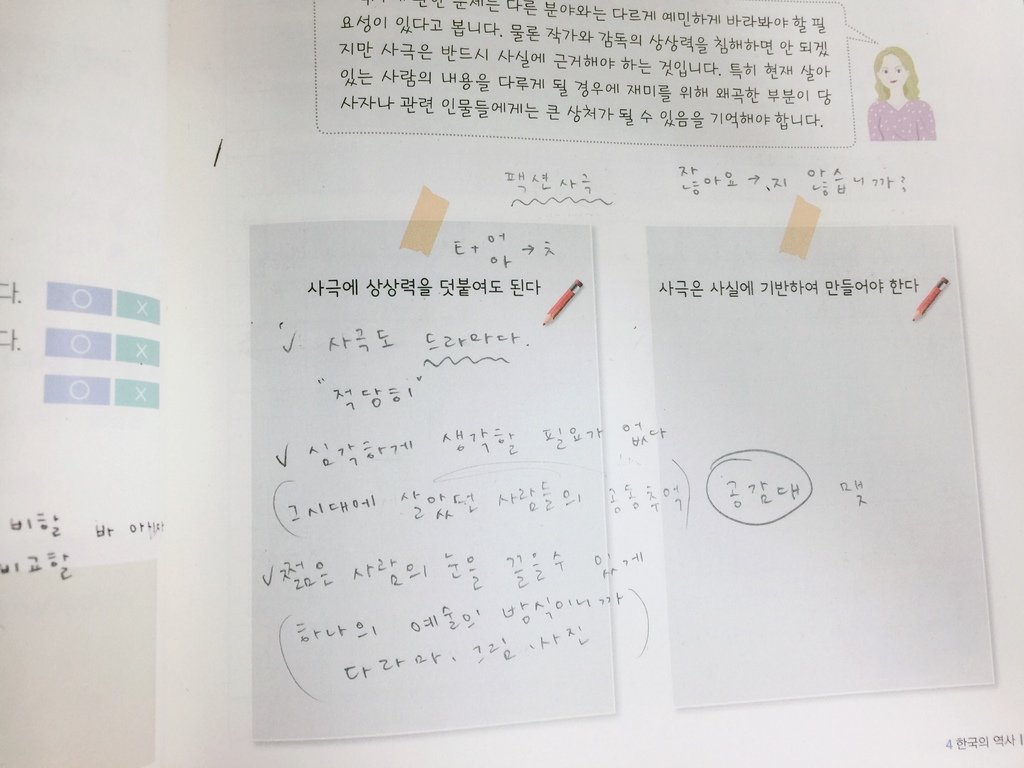 문제는 다른 분야와는 다르게 예민하게 바라봐야 할 필
요성이 있다고 봅니다. 물론 작가와 감독의 상상력을 침해하면 안 되겠
지만 사극은 반드시 사실에 근거해야 하는 것입니다. 특히 현재 살아
있는 사람의 내용을 다루게 될 경우에 재미를 위해 왜곡한 부분이 당
사자나 관련 인물들에게는 큰 상처가 될 수 있음을 기억해야 합니다.
팩션사극
잖아요 → 지 않습니까?
ㅌ + 어
아 → ㅊ
사극에 상상력을 덧붙여도 된다
✓ 사극도 드라마다.
"적당히"
✓ 심각하게 생각할 필요가 없다
(그시대에 살았던 사람들의 공동추억)
✓ 젊은 사람의 눈을 끌을수 있게
(하나의 예술의 방식이니까
다라마, 그림, 사진)
사극은 사실에 기반하여 만들어야 한다
공감대
다. O X
다. O X
O X
비할 바
비교할
4 한국의 역사